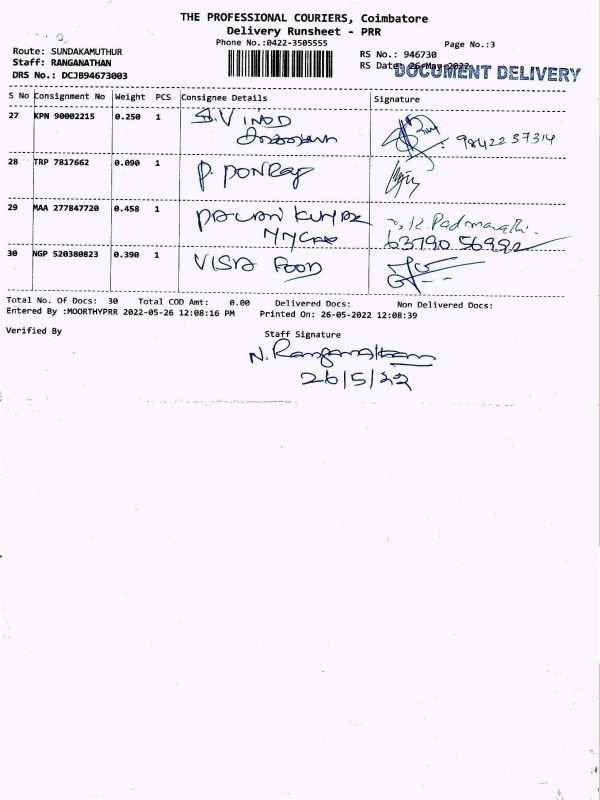 THE PROFESSIONAL COURIERS, Coimbatore
Delivery Runsheet - PRR
Phone No.:0422-3505555
Page No.:3
Route: SUNDAKAMUTHUR
Staff: RANGANATHAN
DRS No.: DCJB94673003
RS No.: 946730
RS Date: 26-May-2022
DOCUMENT DELIVERY
S No Consignment No Weight PCS Consignee Details Signature
27 KPN 90002215 0.250 1 S.VINOD
9842257314
28 TRP 7817662 0.090 1 P. PONRAJ
29 MAA 277847720 0.458 1 PAVAN KUMAR
R. Padmavathi.
30 NGP 520380823 0.390 1 VISD FOOD
Total No. Of Docs: 30 Total COD Amt: 0.00 Delivered Docs: Non Delivered Docs:
Entered By :MOORTHYPRR 2022-05-26 12:08:16 PM Printed On: 26-05-2022 12:08:39
Verified By Staff Signature
N. Ranganathan
26/5/22